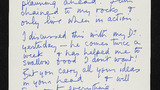 planning ahead
chained to my rocks &
only love when in action.
I discussed this with my
yesterday – he comes twice
a week & has helped me to
swallow food I don't want!
But you carry all your ideas
in your head & will